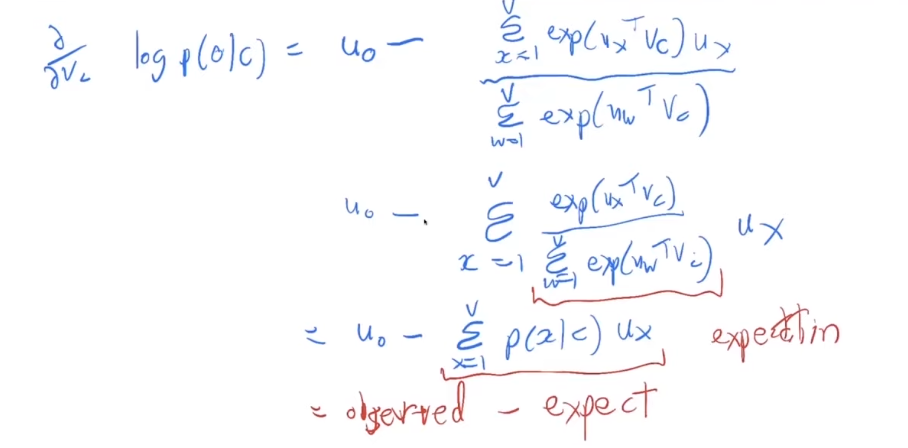 ∂/∂v_c log p(o|c) = u_o − Σ_{x=1}^{V} exp(u_x^T v_c) u_x / Σ_{w=1}^{V} exp(u_w^T v_c)
u_o − Σ_{x=1}^{V} exp(u_x^T v_c) / Σ_{w=1}^{V} exp(u_w^T v_c) u_x
= u_o − Σ_{x=1}^{V} p(x|c) u_x
= observed − expect